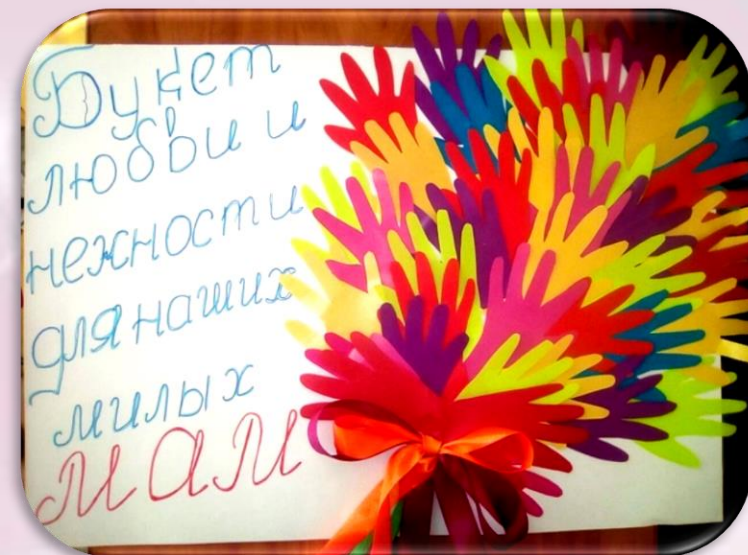 Букет
любви и
нежности
для наших
милых
МАМ